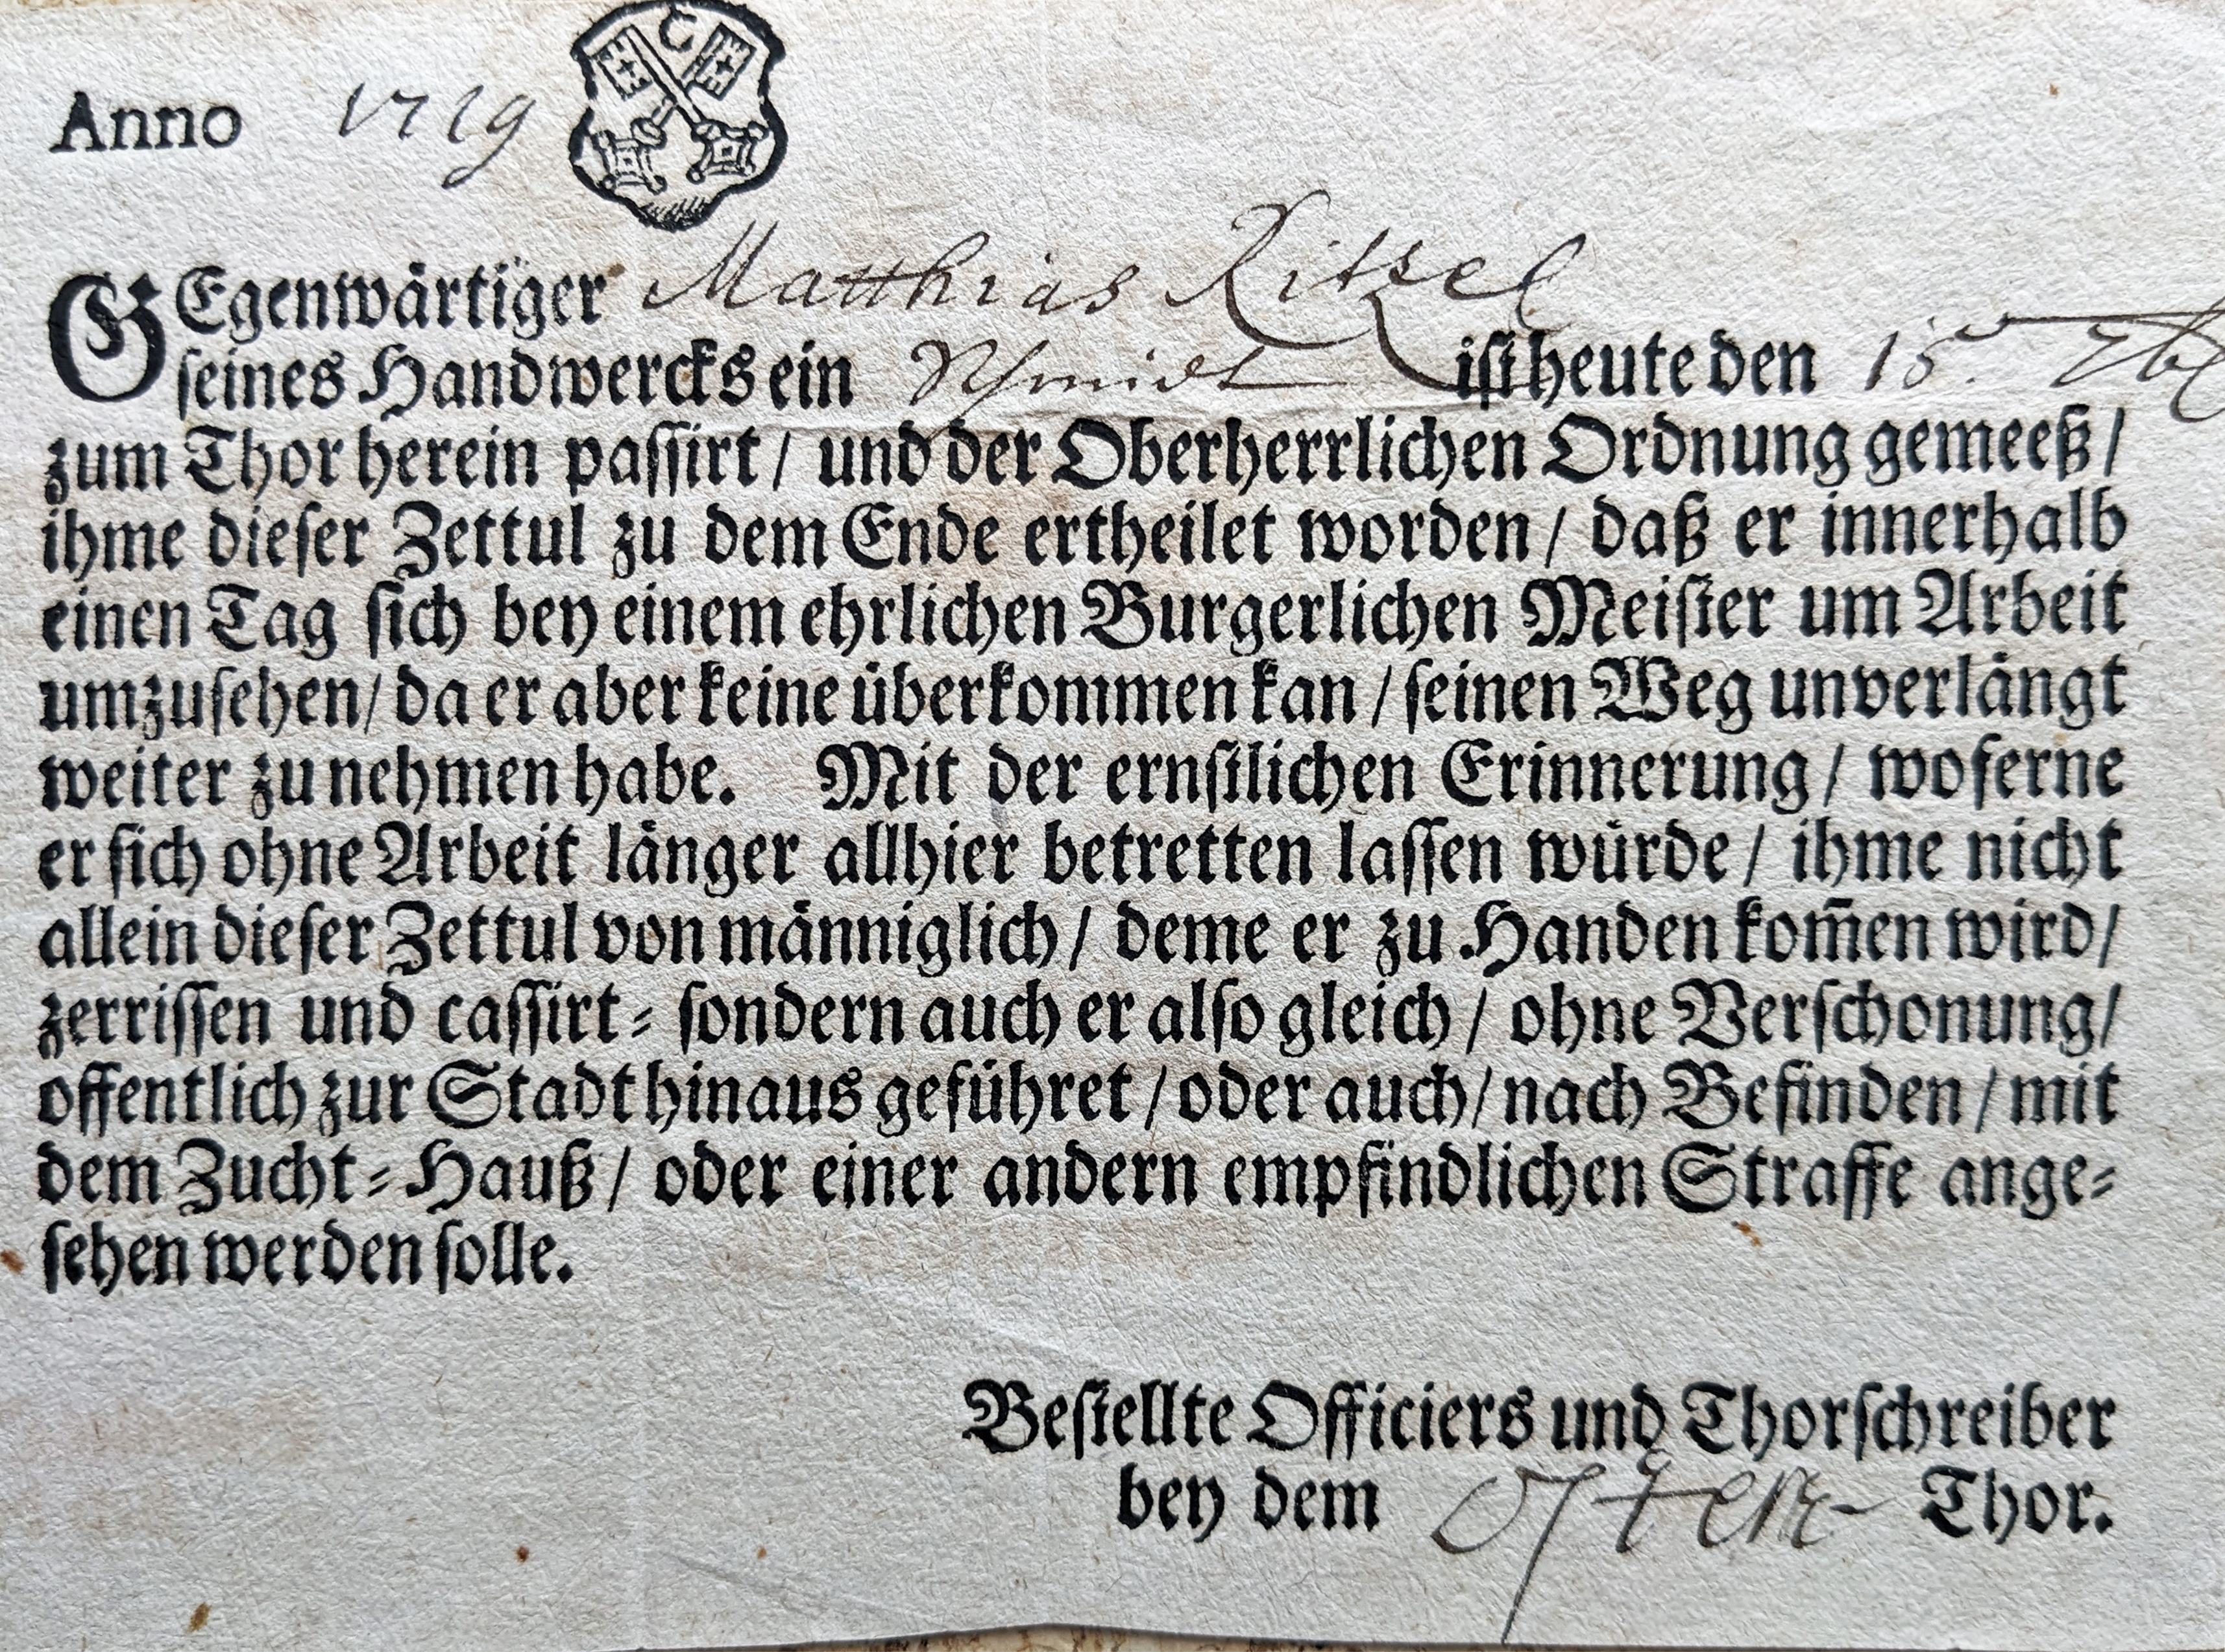 Anno 1719
GEgenwärtiger Matthias
ſeines Handwercks ein Schmidt iſt heute den 15.
zum Thor herein paſſirt / und der Oberherrlichen Ordnung gemeeß /
ihme dieſer Zettul zu dem Ende ertheilet worden / daß er innerhalb
einen Tag ſich bey einem ehrlichen Burgerlichen Meiſter um Arbeit
umzuſehen / da er aber keine überkommen kan / ſeinen Weg unverlängt
weiter zu nehmen habe. Mit der ernſtlichen Erinnerung / woferne
er ſich ohne Arbeit länger allhier betretten laſſen würde / ihme nicht
allein dieſer Zettul von männiglich / deme er zu Handen kom̃en wird /
zerriſſen und caſſirt⸗ ſondern auch er alſo gleich / ohne Verſchonung /
offentlich zur Stadt hinaus geführet / oder auch / nach Befinden / mit
dem Zucht⸗Hauß / oder einer andern empfindlichen Straffe ange⸗
ſehen werden ſolle.
Beſtellte Officiers und Thorſchreiber
bey dem Oſten Thor.